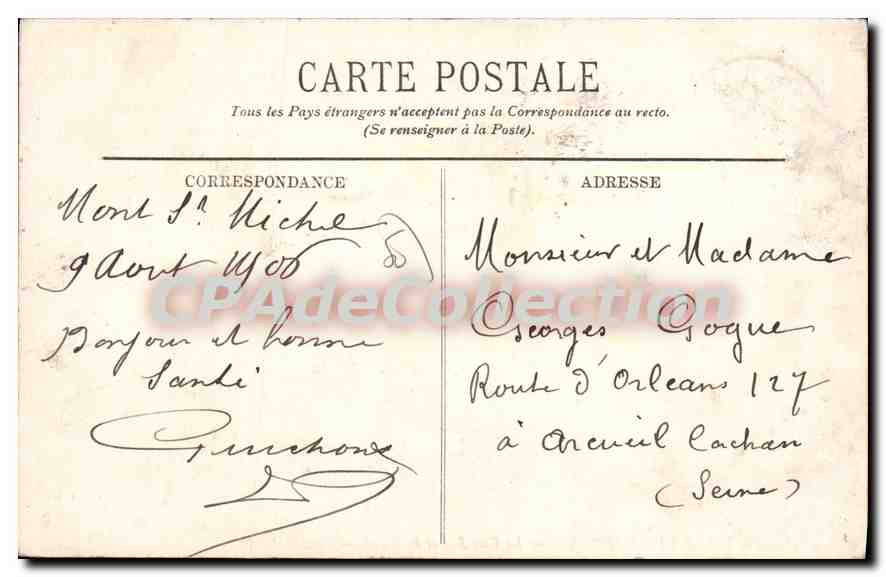 CARTE POSTALE
Tous les Pays étrangers n'acceptent pas la Correspondance au recto.
(Se renseigner à la Poste).
CORRESPONDANCE
Mont St Michel
9 Aout 1906
Bonjour et bonne
Santé
ADRESSE
Monsieur et Madame
Georges Gogue
Route d'Orleans 127
à Arcueil Cachan
(Seine)
CPAdeCollection